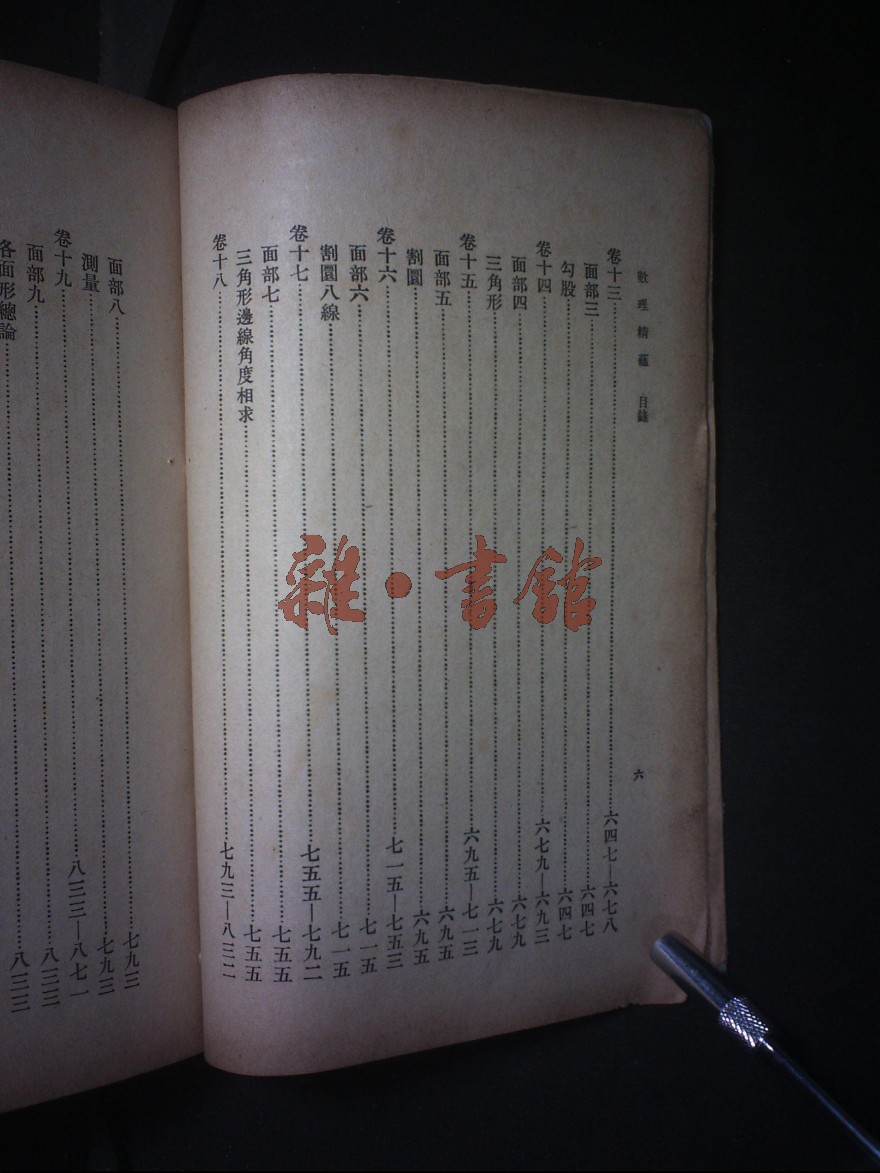 數理精蘊 目錄 六
卷十三……六四七—六七八
面部三……六四七
勾股……六四七
卷十四……六七九—六九三
面部四……六七九
三角形……六七九
卷十五……六九五—七一三
面部五……六九五
割圜……六九五
卷十六……七一五—七五三
面部六……七一五
割圜八線……七一五
卷十七……七五五—七九二
面部七……七五五
三角形邊線角度相求……七五五
卷十八……七九三—八三二
面部八……七九三
測量……七九三
卷十九……八三三—八七一
面部九……八三三
各面形總論……八三三
雜·書館